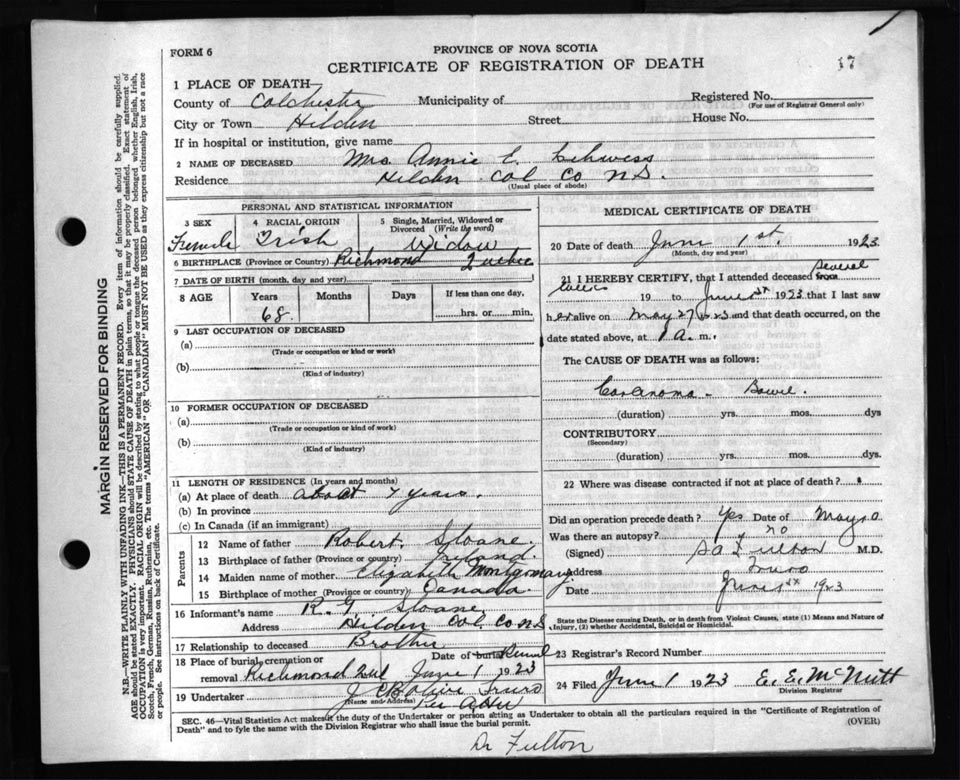 FORM 6
PROVINCE OF NOVA SCOTIA
CERTIFICATE OF REGISTRATION OF DEATH
17
1 PLACE OF DEATH—
County of Colchester Municipality of Registered No.
(For use of Registrar General only)
City or Town Hilden Street House No.
If in hospital or institution, give name
2 NAME OF DECEASED Mrs Annie E.
Residence Hilden Col Co N.S.
(Usual place of abode)
PERSONAL AND STATISTICAL INFORMATION
3 SEX 4 RACIAL ORIGIN 5 Single, Married, Widowed or Divorced (Write the word)
Female Irish Widow
6 BIRTHPLACE (Province or Country) Richmond Quebec
7 DATE OF BIRTH (month, day and year)
8 AGE Years Months Days If less than one day,
68 hrs. or min.
9 LAST OCCUPATION OF DECEASED
(a)
(Trade or occupation or kind or work)
(b)
(Kind of industry)
10 FORMER OCCUPATION OF DECEASED
(a)
(Trade or occupation or kind of work)
(b)
(Kind of industry)
11 LENGTH OF RESIDENCE (In years and months)
(a) At place of death about 7 years.
(b) In province
(c) In Canada (if an immigrant)
Parents
12 Name of father Robert Sloane
13 Birthplace of father (Province or country) Ireland
14 Maiden name of mother Elizabeth Montgomary
15 Birthplace of mother (Province or country) Canada
16 Informant's name R. G. Sloane
Address Hilden Col. Co NS
17 Relationship to deceased Brother
18 Place of burial, cremation or removal Richmond Date of burial June 1 1923
19 Undertaker Truro
(Name and Address)
MEDICAL CERTIFICATE OF DEATH
20 Date of death June 1st. 1923
(Month, day and year)
21 I HEREBY CERTIFY, that I attended deceased from several
19 to June 1st 1923 that I last saw
her alive on May 27 1923 and that death occurred, on the
date stated above, at 1 A. m.
The CAUSE OF DEATH was as follows:
Carcinoma - Bowel.
(duration) yrs. mos. dys
CONTRIBUTORY
(Secondary)
(duration) yrs. mos. dys.
22 Where was disease contracted if not at place of death?
Did an operation precede death? Yes Date of May
Was there an autopsy? no
(Signed) Fulton M.D.
Address Truro
Date June 1st 1923
State the Disease causing Death, or in death from Violent Causes, state (1) Means and Nature of
Injury, (2) whether Accidental, Suicidal or Homicidal.
23 Registrar's Record Number
24 Filed June 1 1923 E. E. McNutt
Division Registrar
SEC. 46—Vital Statistics Act makes it the duty of the Undertaker or person acting as Undertaker to obtain all the particulars required in the "Certificate of Registration of
Death" and to fyle the same with the Division Registrar who shall issue the burial permit. (OVER)
Dr Fulton
MARGIN RESERVED FOR BINDING
N.B.—WRITE PLAINLY WITH UNFADING INK—THIS IS A PERMANENT RECORD. Every item of information should be carefully supplied.
AGE should be stated EXACTLY. PHYSICIANS should STATE CAUSE OF DEATH in plain terms, so that it may be properly classified. Exact statement of
OCCUPATION is very important. RACIAL ORIGIN will be described by stating to what people or tongue the deceased person belonged whether English, Irish,
Scotch, French, German, Russian, Ruthenian, etc. The terms "AMERICAN" OR "CANADIAN" MUST NOT BE USED as they express citizenship but not a race
or people. See instructions on back of Certificate.